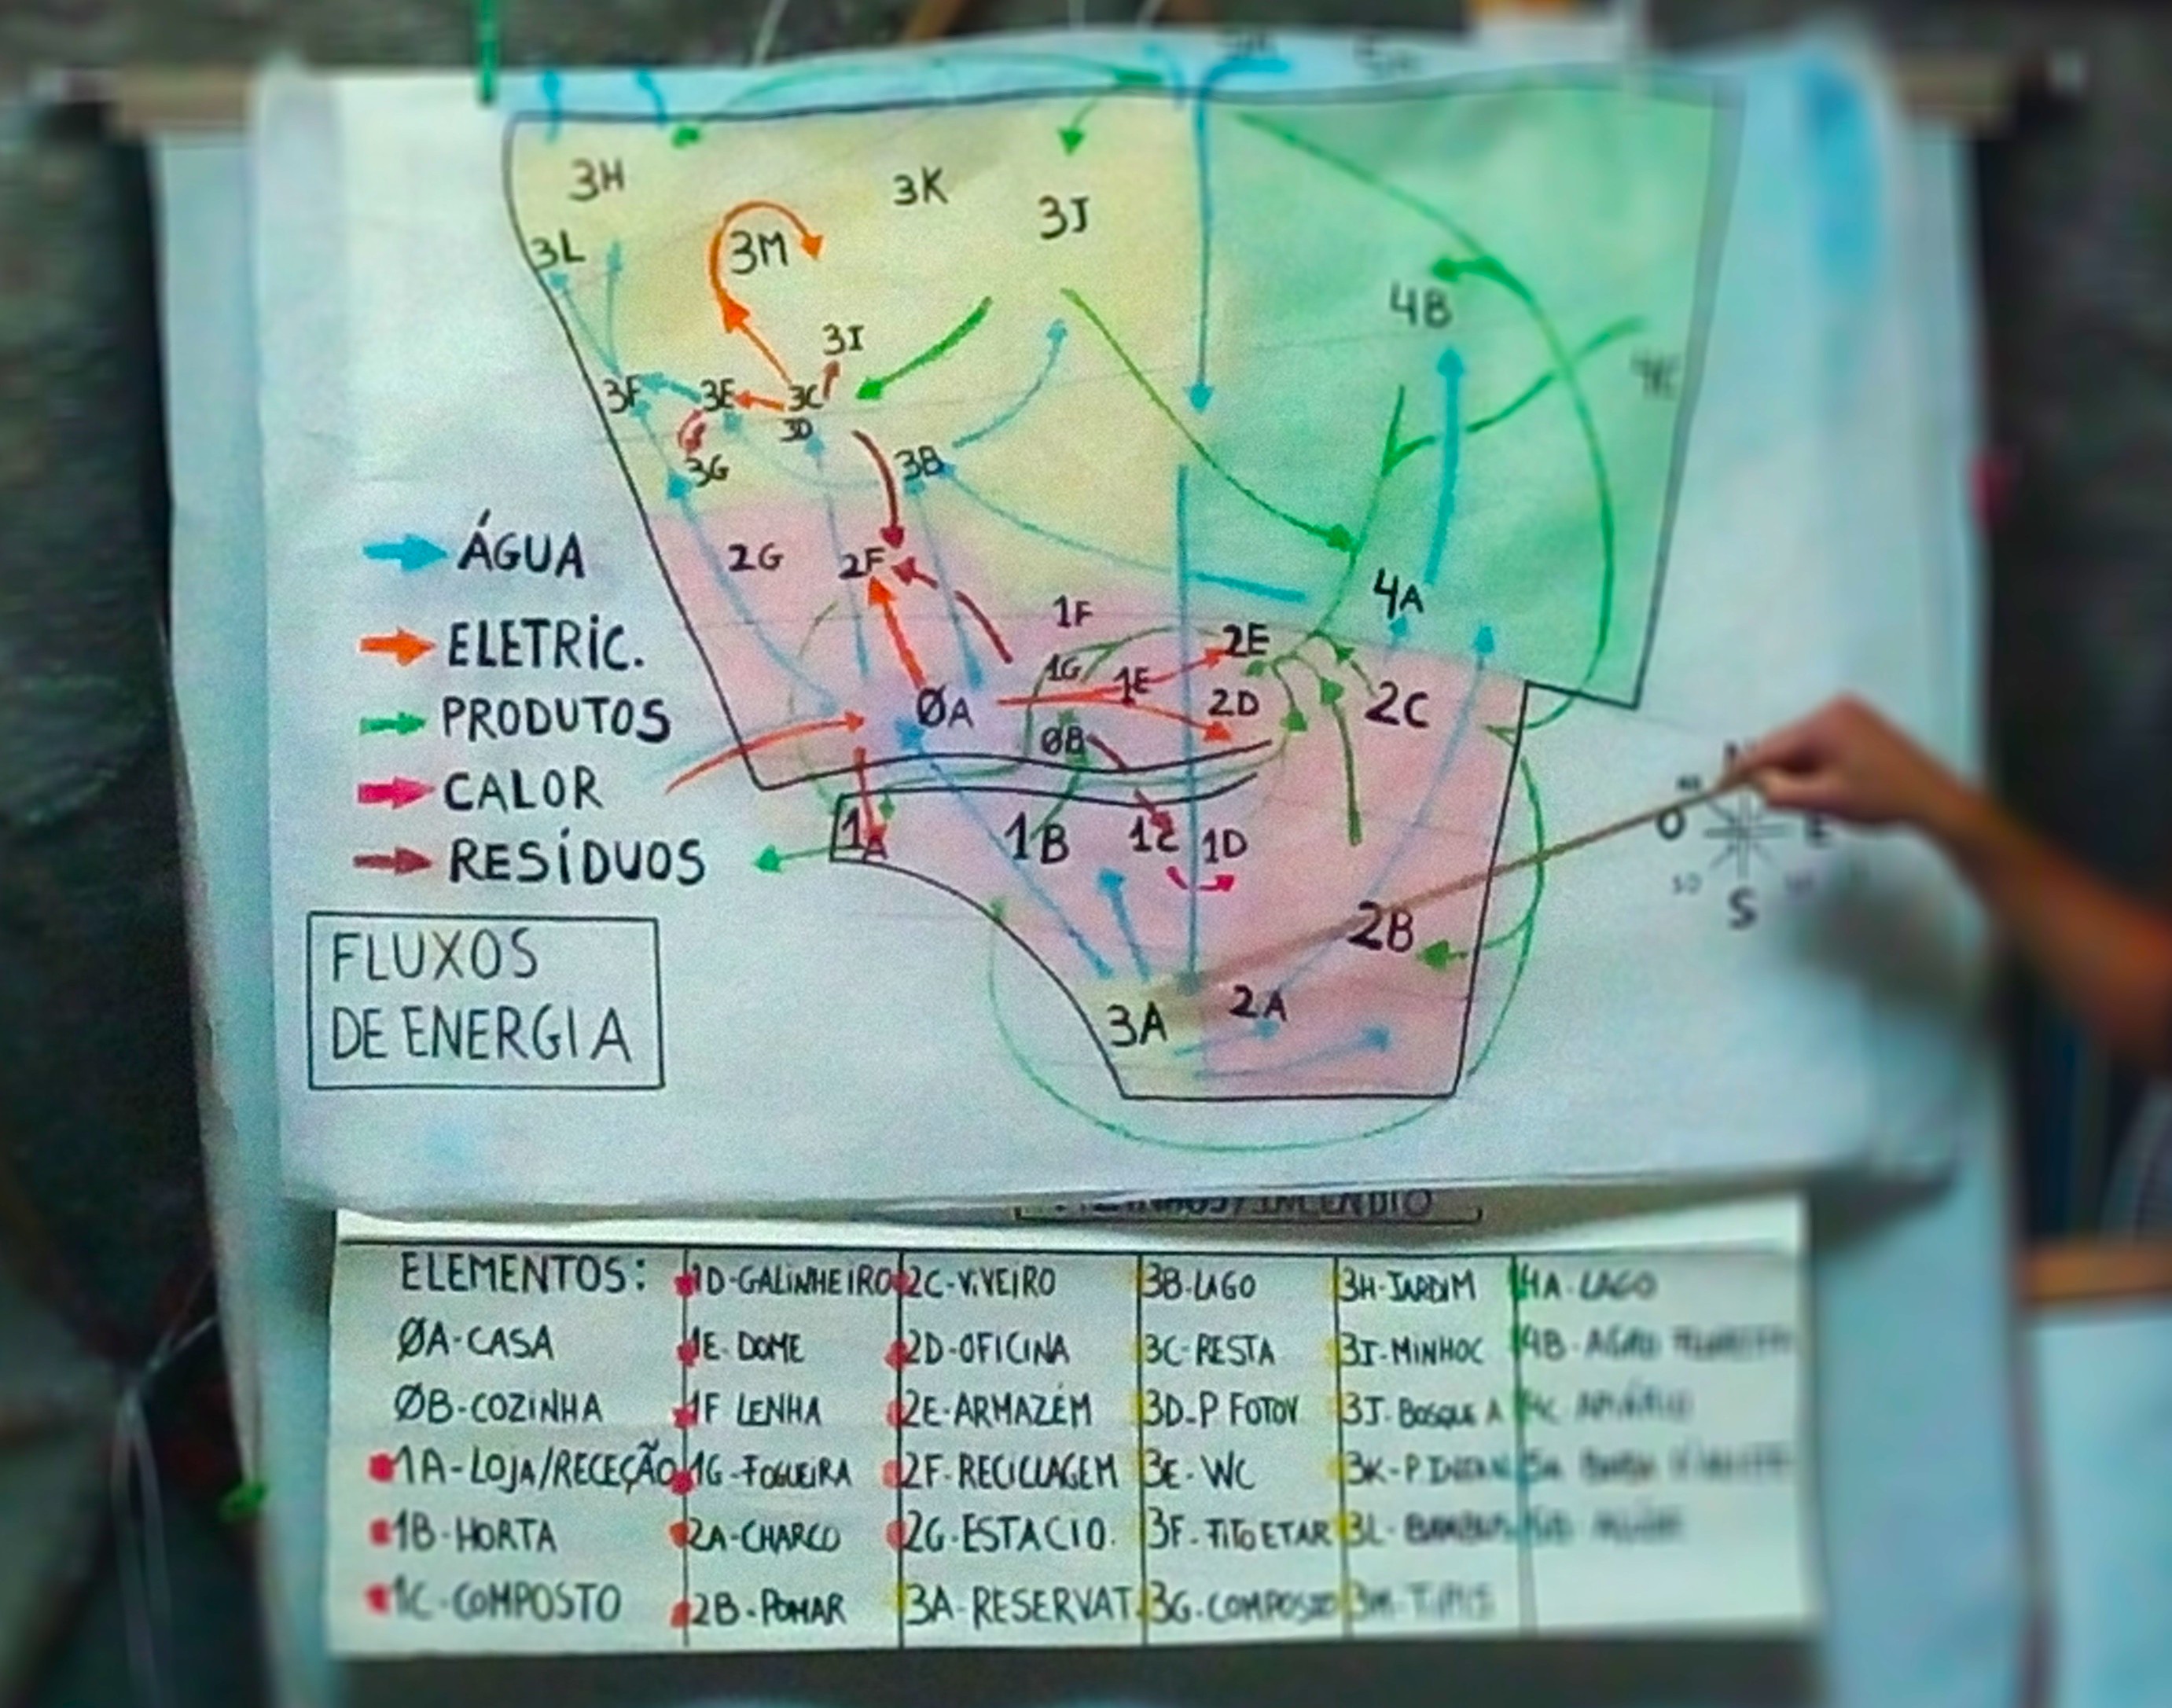 3H
3K
3J
3L
3M
4B
3I
4C
3F
3E
3C
3D
3G
3B
ÁGUA
2G
2F
4A
1F
ELETRIC.
2E
1G
1E
PRODUTOS
ØA
2D
2C
ØB
CALOR
1A
1B
1C
1D
RESÍDUOS
N
O
E
S
FLUXOS
DE ENERGIA
2B
3A
2A
ELEMENTOS:
ØA-CASA
ØB-COZINHA
1A-LOJA/RECEÇÃO
1B-HORTA
1C-COMPOSTO
1D-GALINHEIRO
1E-DOME
1F LENHA
1G-FOGUEIRA
2A-CHARCO
2B-POMAR
2C-VIVEIRO
2D-OFICINA
2E-ARMAZÉM
2F-RECICLAGEM
2G-ESTACIO.
3A-RESERVAT.
3B-LAGO
3C-RESTA
3D-P FOTOV
3E-WC
3F-FITOETAR
3G-COMPOSTO
3H-JARDIM
3I-MINHOC
3J-BOSQUE A
3L-BAMBUS
3M-TIPIS
4A-LAGO